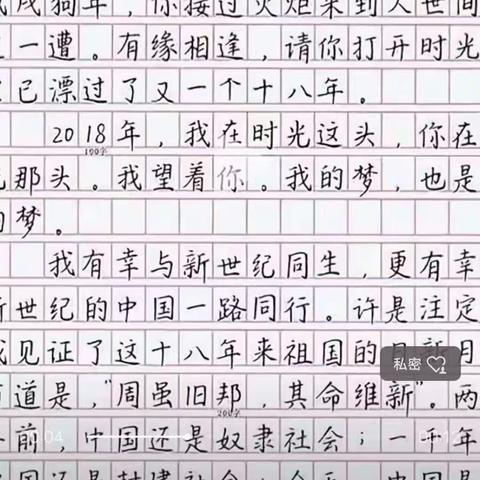 戌狗年，你接过火炬来到人世间
一遭。有缘相逢，请你打开时光
已漂过了又一个十八年。
2018年，我在时光这头，你在
100字
那头。我望着你。我的梦，也是
的梦。
我有幸与新世纪同生，更有幸
新世纪的中国一路同行。许是注定
我见证了这十八年来祖国的日新月
私密
道是，"周虽旧邦，其命维新"。两
200字
前，中国还是奴隶社会；一千年